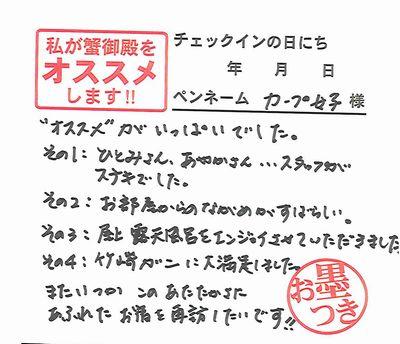 私が蟹御殿を
オススメ
します!!
チェックインの日にち
年 月 日
ペンネーム カープ女子 様
"オススメ"がいっぱいでした。
その1: ひとみさん、あやかさん…スタッフが
ステキでした。
その2: お部屋からのながめがすばらしい。
その3: 屋上露天風呂をエンジョイさせていただきました
その4: 竹崎ガニに大満足しました。
またいつか このあたたかさに
あふれた お宿を再訪したいです!!
お墨つき